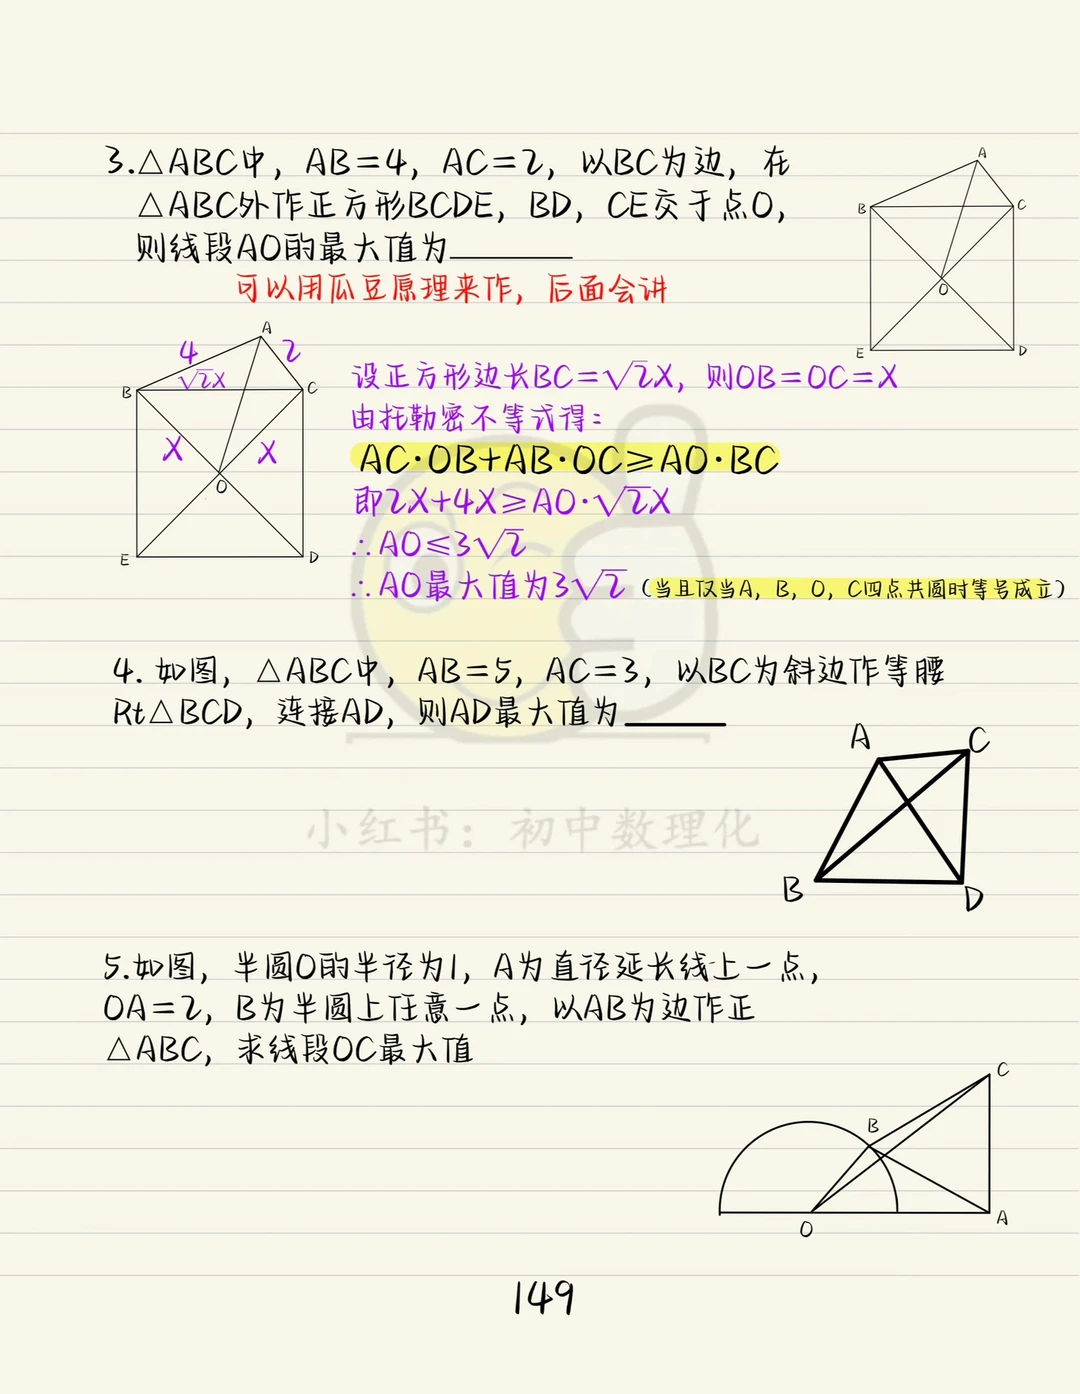 3.△ABC中，AB=4，AC=2，以BC为边，在
△ABC外作正方形BCDE，BD，CE交于点O，
则线段AO的最大值为______
可以用瓜豆原理来作，后面会讲
A
B
C
O
E
D
A
4
2
√2X
B
C
X
X
O
E
D
设正方形边长BC=√2X，则OB=OC=X
由托勒密不等式得：
AC·OB+AB·OC≥AO·BC
即2X+4X≥AO·√2X
∴AO≤3√2
∴AO最大值为3√2（当且仅当A，B，O，C四点共圆时等号成立）
4. 如图，△ABC中，AB=5，AC=3，以BC为斜边作等腰
Rt△BCD，连接AD，则AD最大值为______
A
C
B
D
小红书：初中数理化
5.如图，半圆O的半径为1，A为直径延长线上一点，
OA=2，B为半圆上任意一点，以AB为边作正
△ABC，求线段OC最大值
C
B
O
A
149